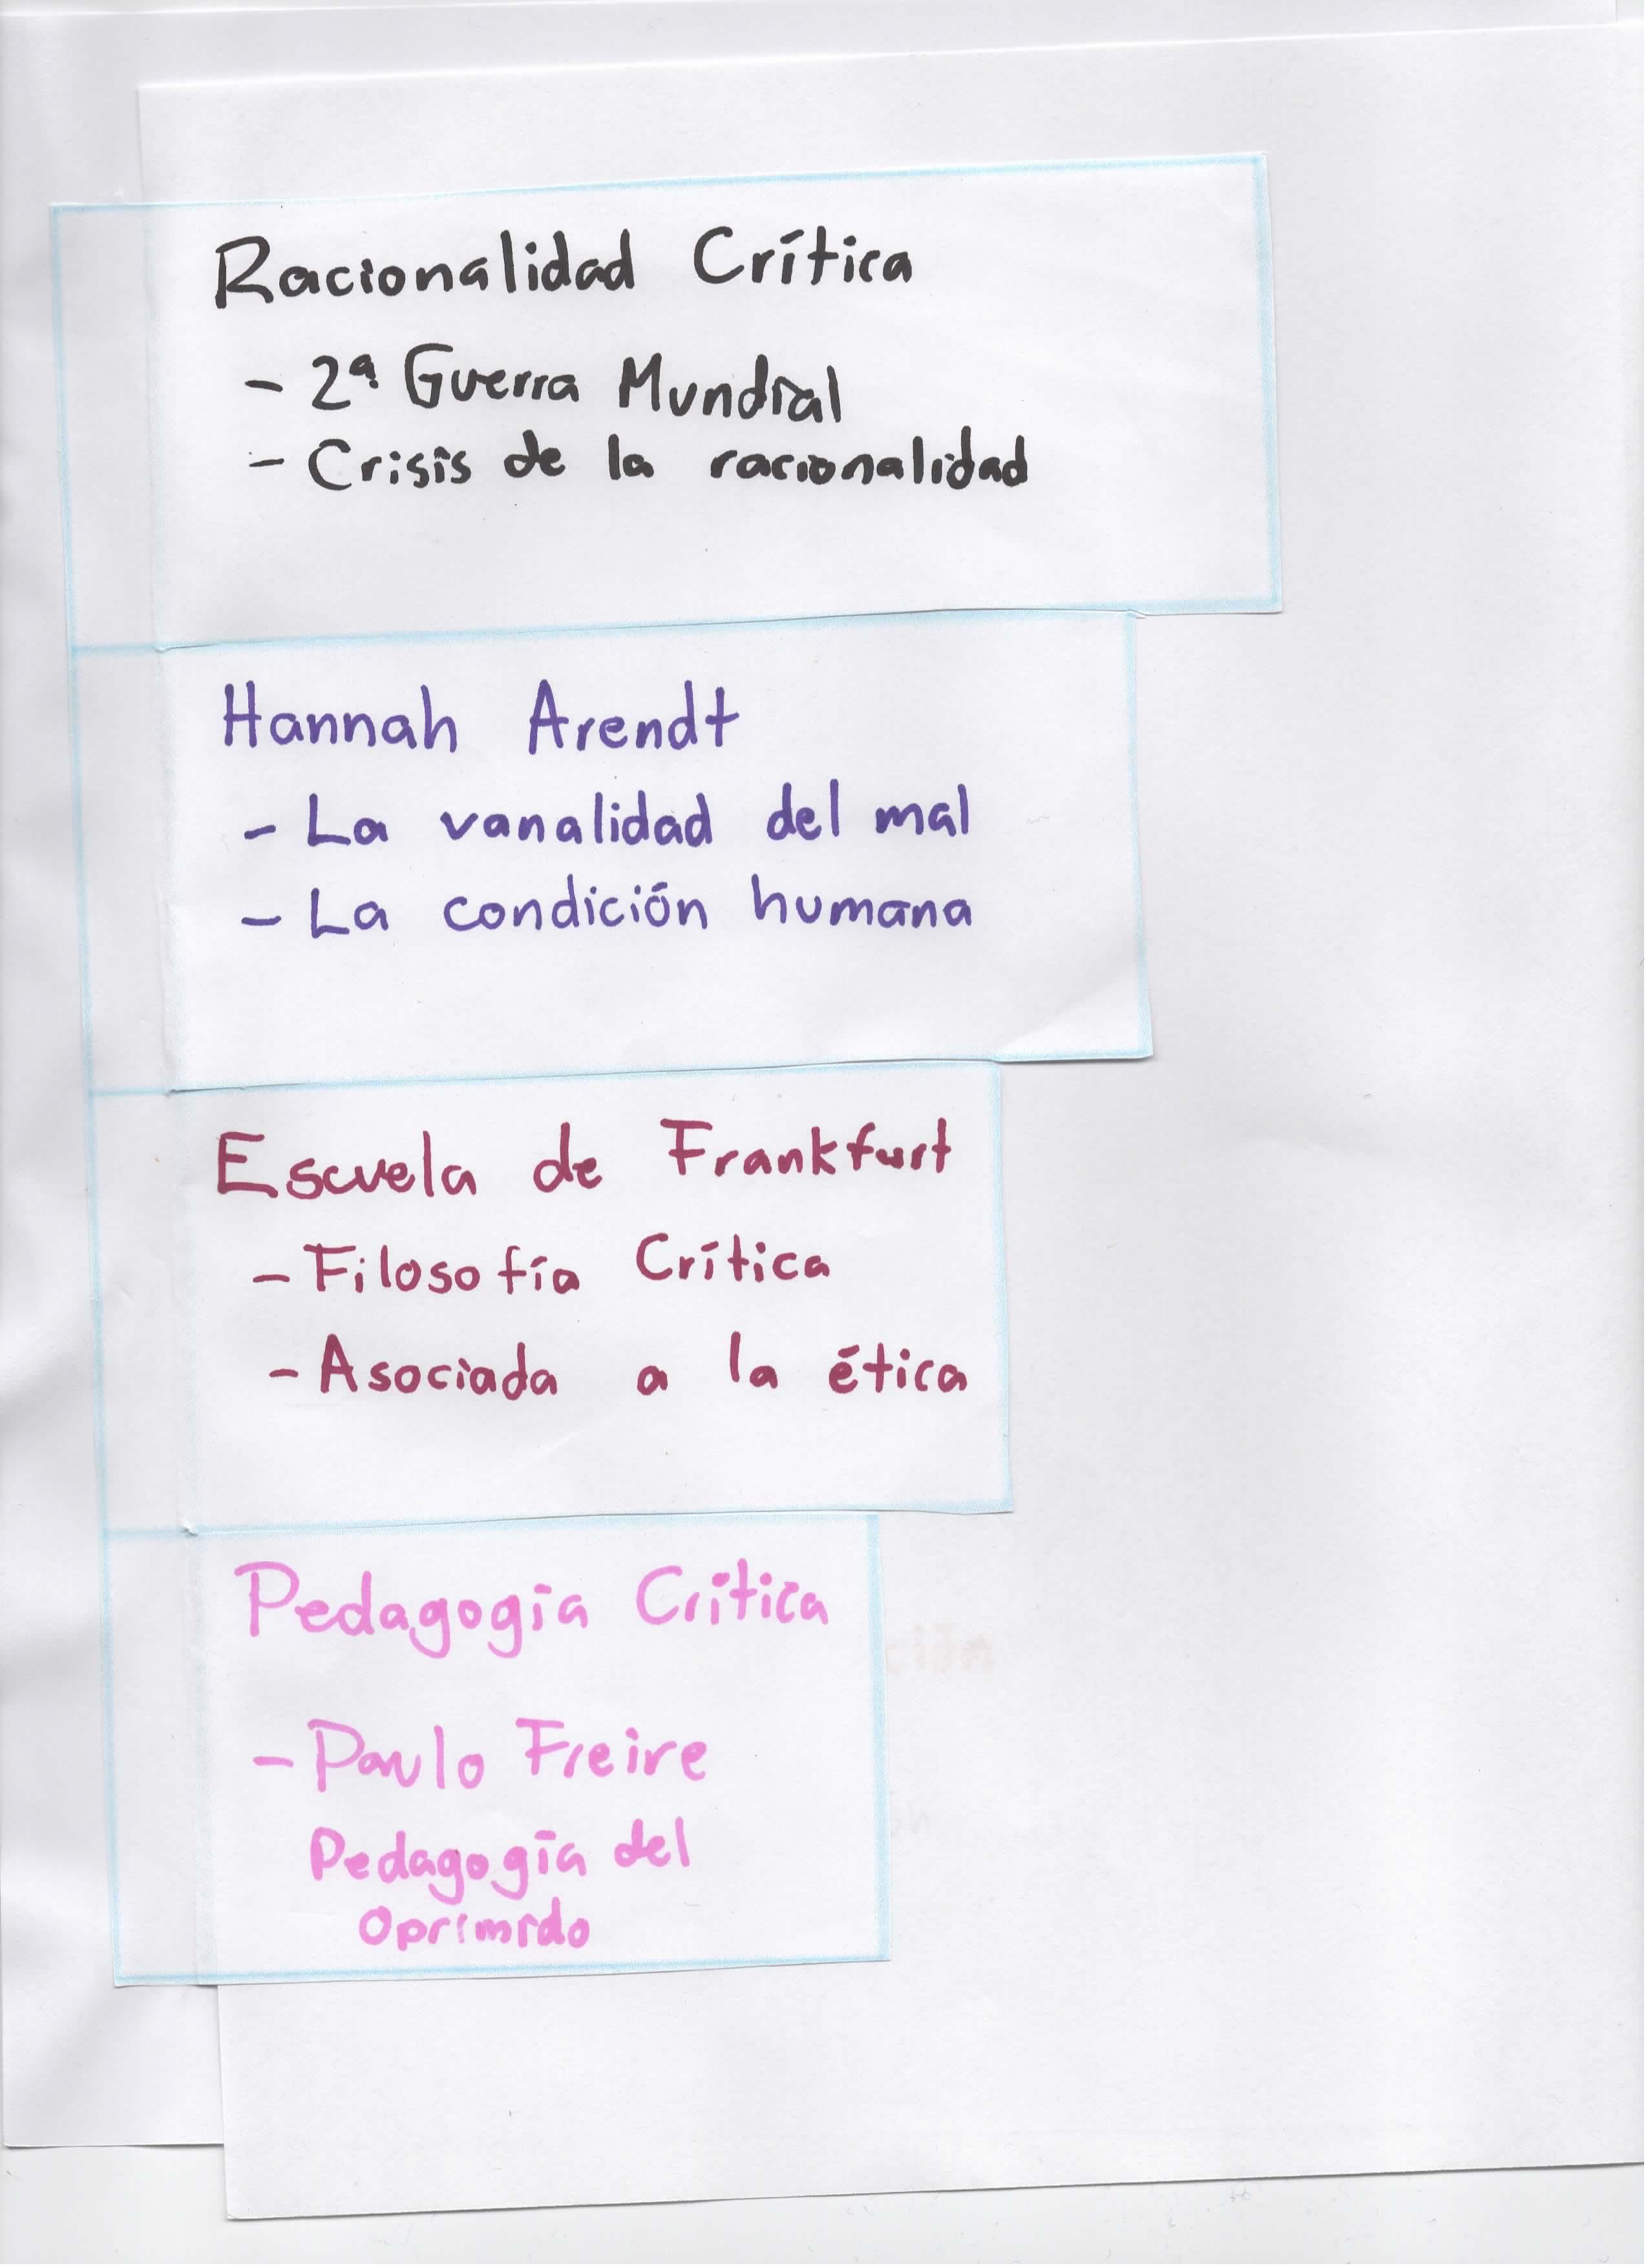 Racionalidad Crítica
- 2ª Guerra Mundial
- Crisis de la racionalidad
Hannah Arendt
- La vanalidad del mal
- La condición humana
Escuela de Frankfurt
- Filosofía Crítica
- Asociada a la ética
Pedagogía Crítica
- Paulo Freire
Pedagogía del
Oprimido